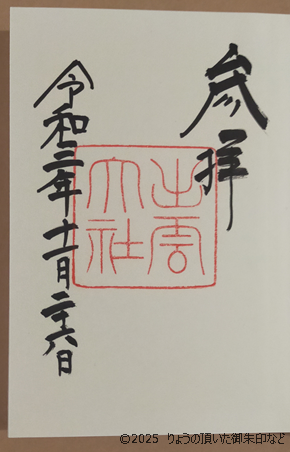 参拝
出雲
大社
令和三年十一月二十六日
©2025 りょうの頂いた御朱印など